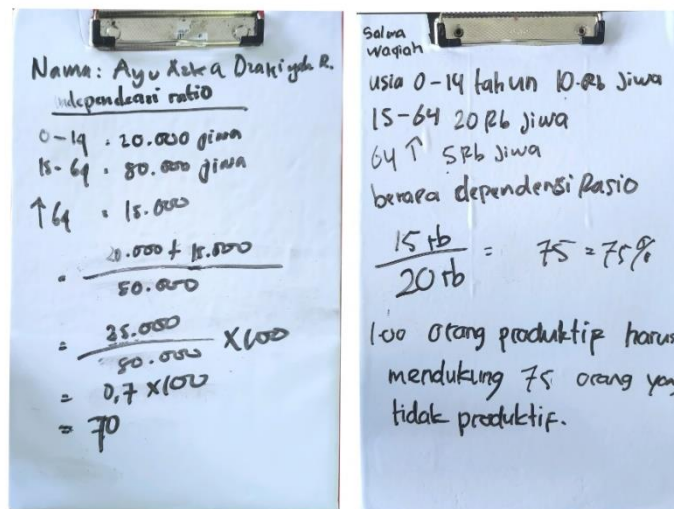 Nama: Ayu Azka Dzakiyah R.
independensi ratio
0-14 : 20.000 jiwa
15-64 : 50.000 jiwa
↑64 : 15.000
= 20.000 + 15.000
50.000
= 35.000 X100
50.000
= 0,7 X100
= 70
Salma
Waqiah
usia 0-14 tahun 10.Rb Jiwa
15-64 20 Rb Jiwa
64 ↑ 5 Rb Jiwa
berapa dependensi Rasio
15 rb = 75 = 75%
20 rb
100 orang produktif harus
mendukung 75 orang yang
tidak produktif.